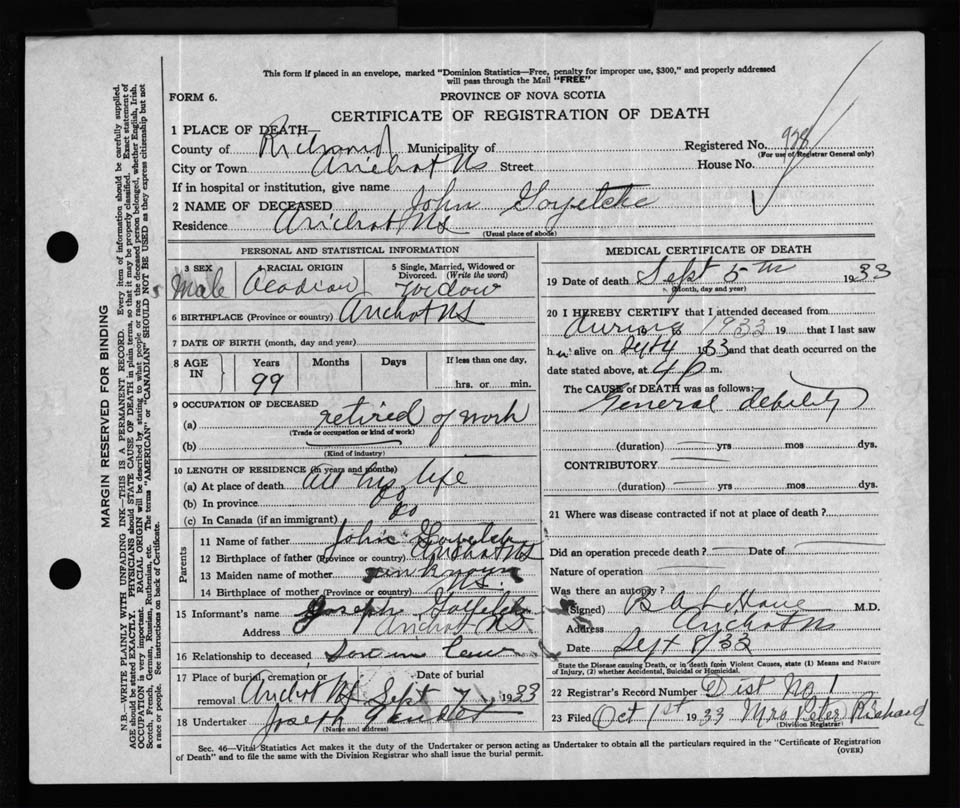 This form if placed in an envelope, marked "Dominion Statistics—Free, penalty for improper use, $300," and properly addressed
will pass through the Mail "FREE"
FORM 6.
PROVINCE OF NOVA SCOTIA
CERTIFICATE OF REGISTRATION OF DEATH
1 PLACE OF DEATH—
County of Richmond Municipality of
Registered No. 928
(For use of Registrar General only)
City or Town Arichat NS Street
House No.
If in hospital or institution, give name
2 NAME OF DECEASED John Goyetche
Residence Arichat NS
(Usual place of abode)
PERSONAL AND STATISTICAL INFORMATION
3 SEX Male
4 RACIAL ORIGIN Acadian
5 Single, Married, Widowed or Divorced. (Write the word)
Widow
6 BIRTHPLACE (Province or country) Arichat NS
7 DATE OF BIRTH (month, day and year)
8 AGE IN
Years Months Days
If less than one day,
99
hrs. or min.
9 OCCUPATION OF DECEASED
(a) retired of work
(Trade or occupation or kind of work)
(b)
(Kind of industry)
10 LENGTH OF RESIDENCE (in years and months)
(a) At place of death All his life
(b) In province do
(c) In Canada (if an immigrant) do
Parents
11 Name of father John
12 Birthplace of father (Province or country) Arichat NS
13 Maiden name of mother unknown
14 Birthplace of mother (Province or country) NS.
15 Informant's name Joseph
Address Arichat NS
16 Relationship to deceased Son in law
17 Place of burial, cremation or removal Arichat NS
Date of burial Sept 7 1933
18 Undertaker Joseph
(Name and address)
MEDICAL CERTIFICATE OF DEATH
19 Date of death Sept 5th 1933
(Month, day and year)
20 I HEREBY CERTIFY that I attended deceased from
during 1933 19 that I last saw
h im alive on Sept 4 1933 and that death occurred on the
date stated above, at 4 P m.
The CAUSE of DEATH was as follows:
General debility
(duration) yrs mos dys.
CONTRIBUTORY
(duration) yrs mos dys.
21 Where was disease contracted if not at place of death?
Did an operation precede death? Date of
Nature of operation
Was there an autopsy?
(Signed) M.D.
Address Arichat NS
Date Sept 8/33
State the Disease causing Death, or in death from Violent Causes, state (1) Means and Nature
of Injury, (2) whether Accidental, Suicidal or Homicidal.
22 Registrar's Record Number Dist No 1
23 Filed Oct 1st 1933 Mrs Peter Richard
(Division Registrar)
Sec. 46—Vital Statistics Act makes it the duty of the Undertaker or person acting as Undertaker to obtain all the particulars required in the "Certificate of Registration
of Death" and to file the same with the Division Registrar who shall issue the burial permit.
(OVER)
MARGIN RESERVED FOR BINDING
N.B.—WRITE PLAINLY WITH UNFADING INK—THIS IS A PERMANENT RECORD. Every item of information should be carefully supplied.
AGE should be stated EXACTLY. PHYSICIANS should STATE CAUSE OF DEATH in plain terms, so that it may be properly classified. Exact statement of
OCCUPATION is very important. RACIAL ORIGIN will be described by stating to what people or race the deceased person belonged, whether English, Irish,
Scotch, French, German, Russian, Ruthenian, etc. The terms "AMERICAN" or "CANADIAN" SHOULD NOT BE USED as they express citizenship but not
a race or people. See instructions on back of Certificate.